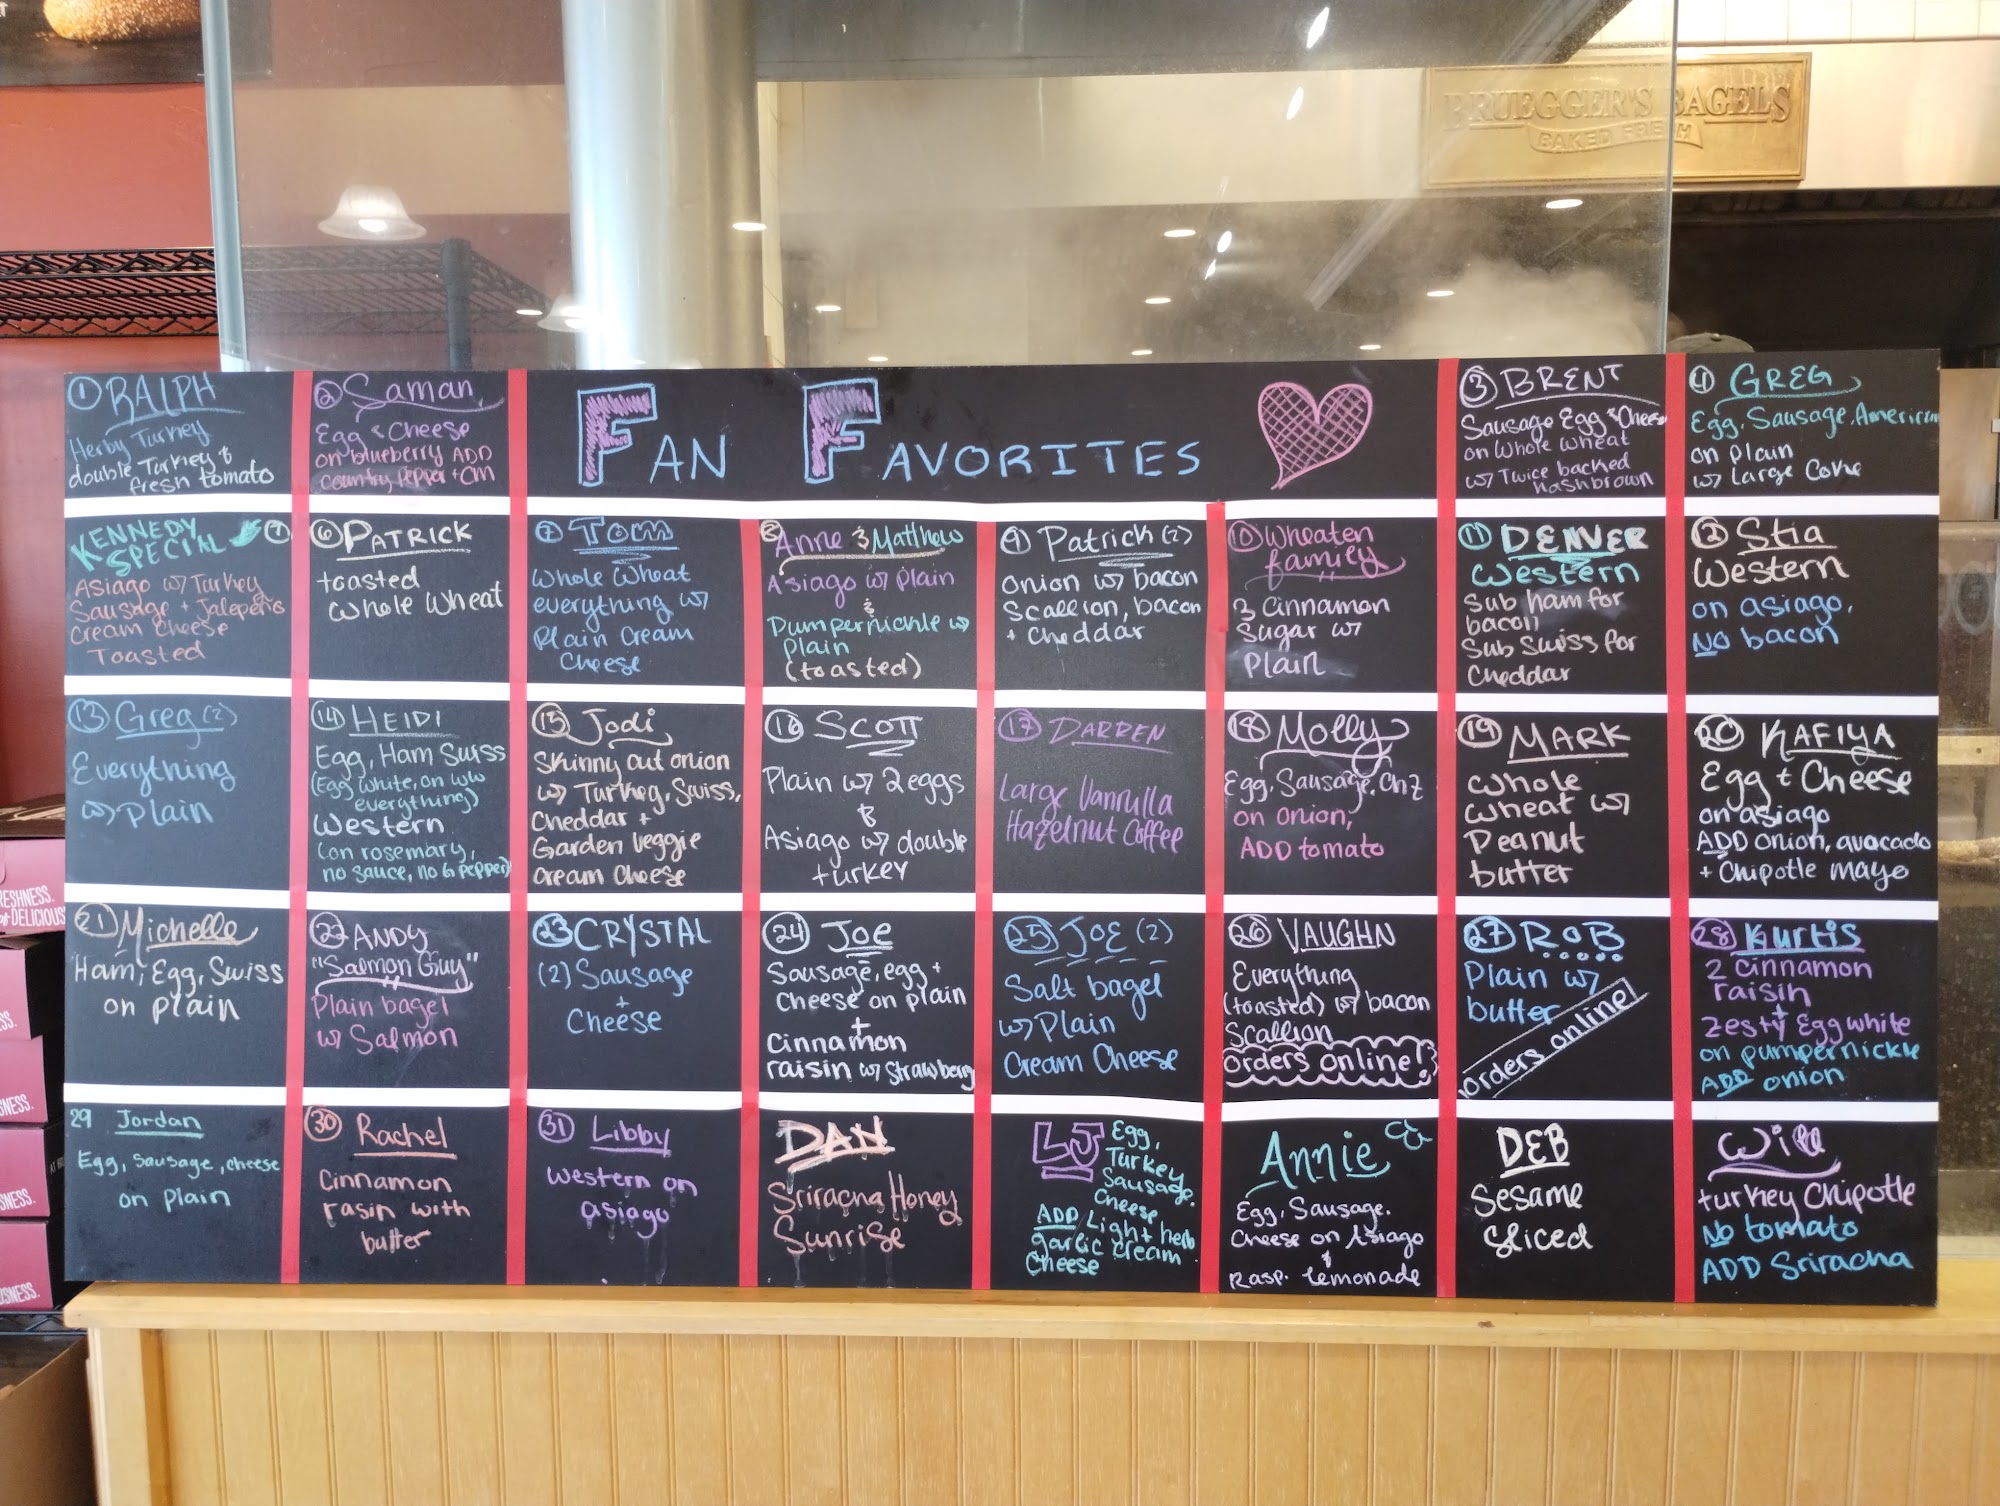 BRUEGGER'S BAGELS
BAKED FRESH
FAN FAVORITES
1 RALPH
Herby Turkey
double Turkey &
fresh tomato
2 Saman
Egg & Cheese
on blueberry ADD
country Pepper + CM
3 BRENT
Sausage Egg & Cheese
on Whole Wheat
w/ Twice backed
hashbrown
4 GREG
Egg, Sausage, American
on plain
w/ Large Coke
KENNEDY
SPECIAL
Asiago w/ Turkey
Sausage + Jalepeño
Cream Cheese
Toasted
6 PATRICK
toasted
Whole Wheat
7 Tom
Whole Wheat
everything w/
Plain Cream
Cheese
8 Anne & Matthew
Asiago w/ plain
&
Pumpernickle w/
plain
(toasted)
9 Patrick (2)
Onion w/ bacon
Scallion, bacon
+ Cheddar
10 Wheaten
family
3 Cinnamon
Sugar w/
Plain
11 DENVER
Western
Sub ham for
bacon
Sub Swiss for
Cheddar
12 Stia
Western
on asiago,
NO bacon
13 Greg (2)
Everything
w/ plain
14 HEIDI
Egg, Ham Swiss
(Egg white, on ww
everything)
Western
(on rosemary,
no sauce, no G pepper)
15 Jodi
Skinny cut onion
w/ Turkey, Swiss,
Cheddar +
Garden Veggie
Cream Cheese
16 SCOTT
Plain w/ 2 eggs
&
Asiago w/ double
turkey
17 DARREN
Large Vannulla
Hazelnut Coffee
18 Molly
Egg, Sausage, Chz
on onion,
ADD tomato
19 MARK
Whole
Wheat w/
Peanut
butter
20 KAFIYA
Egg + Cheese
on asiago
ADD onion, avocado
+ Chipotle Mayo
21 Michelle
Ham, Egg, Swiss
on plain
22 ANDY
"Salmon Guy"
Plain bagel
w/ Salmon
23 CRYSTAL
(2) Sausage
+
Cheese
24 JOE
Sausage, egg +
Cheese on plain
+
Cinnamon
raisin w/ Strawberry
25 JOE (2)
Salt bagel
w/ Plain
Cream Cheese
26 VAUGHN
Everything
(toasted) w/ bacon
Scallion
orders online!
27 ROB
Plain w/
butter
orders online!
28 Kurtis
2 cinnamon
raisin
+
Zesty Egg white
on pumpernickle
ADD onion
29 Jordan
Egg, Sausage, cheese
on plain
30 Rachel
Cinnamon
rasin with
butter
31 Libby
Western on
asiago
DAN
Sriracha Honey
Sunrise
LJ Egg,
Turkey
Sausage,
Cheese,
ADD Light herb
garlic cream
Cheese
Annie
Egg, Sausage,
Cheese on Asiago
&
Rasp. lemonade
DEB
Sesame
Sliced
Will
turkey Chipotle
No tomato
ADD Sriracha